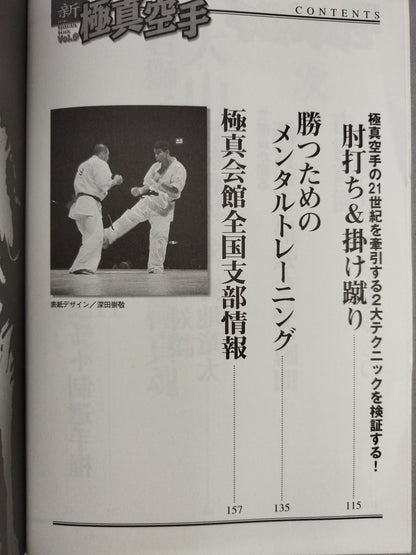 新
極真空手
CONTENTS
極真空手の21世紀を牽引する2大テクニックを検証する!
肘打ち&掛け蹴り
115
勝つための
メンタルトレーニング
135
極真会館全国支部情報
157
表紙デザイン/深田崇敬